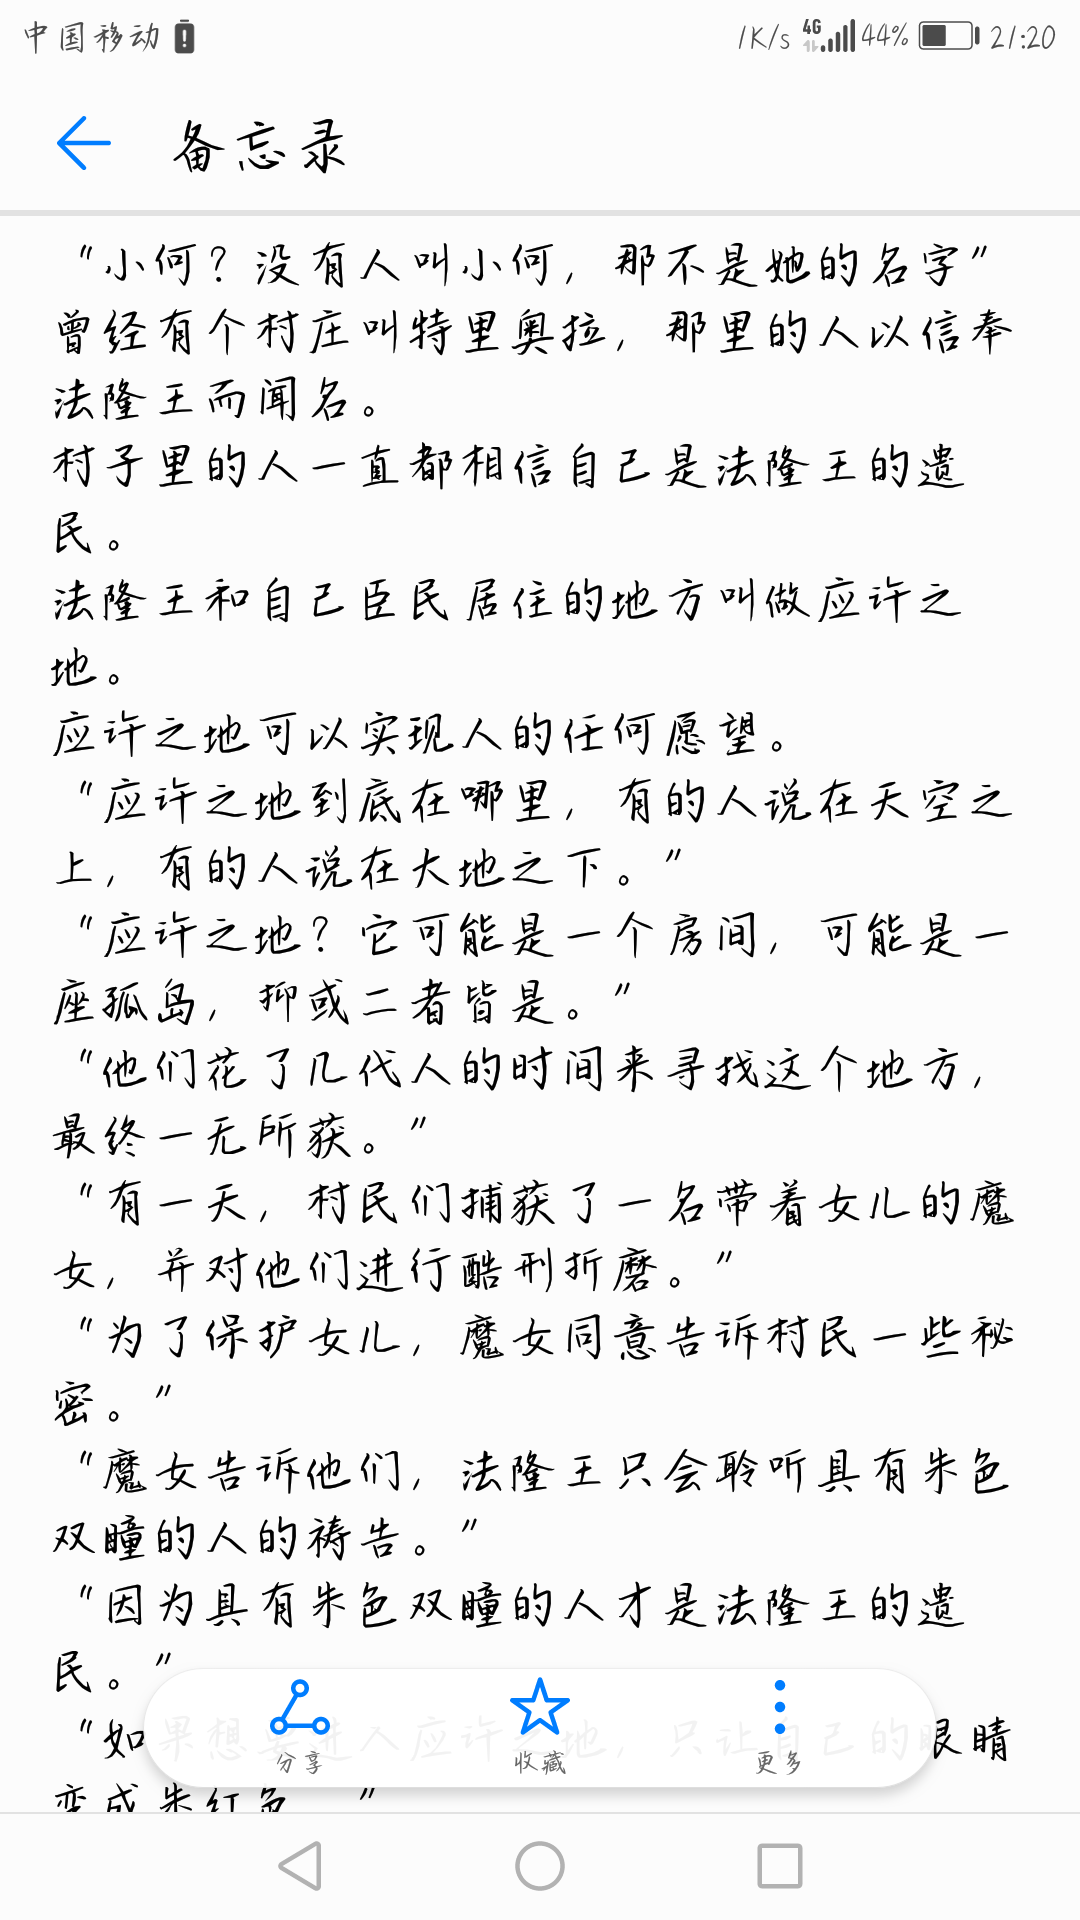 中国移动
1K/s 4G 44% 21:20
备忘录
“小何？没有人叫小何，那不是她的名字”
曾经有个村庄叫特里奥拉，那里的人以信奉
法隆王而闻名。
村子里的人一直都相信自己是法隆王的遗
民。
法隆王和自己臣民居住的地方叫做应许之
地。
应许之地可以实现人的任何愿望。
“应许之地到底在哪里，有的人说在天空之
上，有的人说在大地之下。”
“应许之地？它可能是一个房间，可能是一
座孤岛，抑或二者皆是。”
“他们花了几代人的时间来寻找这个地方，
最终一无所获。”
“有一天，村民们捕获了一名带着女儿的魔
女，并对他们进行酷刑折磨。”
“为了保护女儿，魔女同意告诉村民一些秘
密。”
“魔女告诉他们，法隆王只会聆听具有朱色
双瞳的人的祷告。”
“因为具有朱色双瞳的人才是法隆王的遗
民。”
“如果想要进入应许之地，只让自己的眼睛
变成朱红色。”
分享
收藏
更多